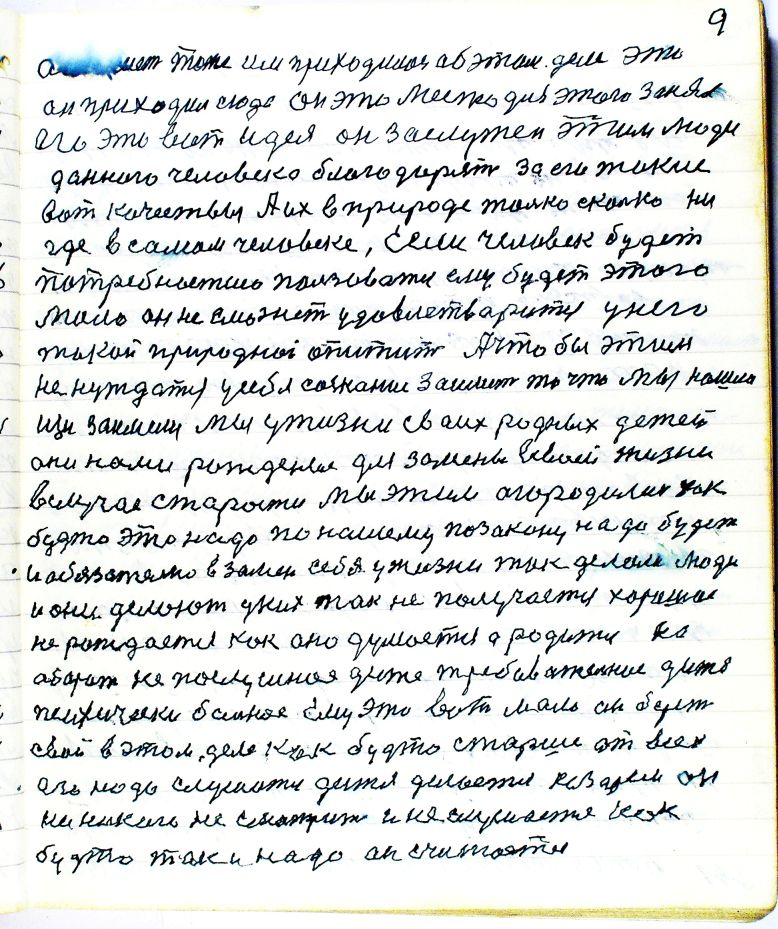 9
тоже им приходилося об этом деле это
он приходил сюда он это место для этого занял
его это вот идея он заслужен этим люди
данного человека благодарят за его такие
вот качествы А их в природе только сколко ни
где в самом человеке, Если человек будет
потребностию ползоватя ему будет этого
мало он не сможнет удовлетваритя у него
такой природной Ачто бы этим
не нуждатя у себя сознание то что мы нашли
мы у жизни своих родных детей
они нами рождення для замены всвоей жизни
вслучае старости мы этим огородилис как
будто это надо по нашему позакону надо будет
и обязателно в замен себя ужизни так делали люди
и они делоют уних так не получается хорошое
не рождается как оно думается а родитя на
оборот не послушное дитя требователное дитя
психически болное Ему это вот мало он берет
свой в этом. деле как будто старше от всех
его надо слушати дитя делается он
ни накого не смотрит и не слушается как
будто так и надо он считается